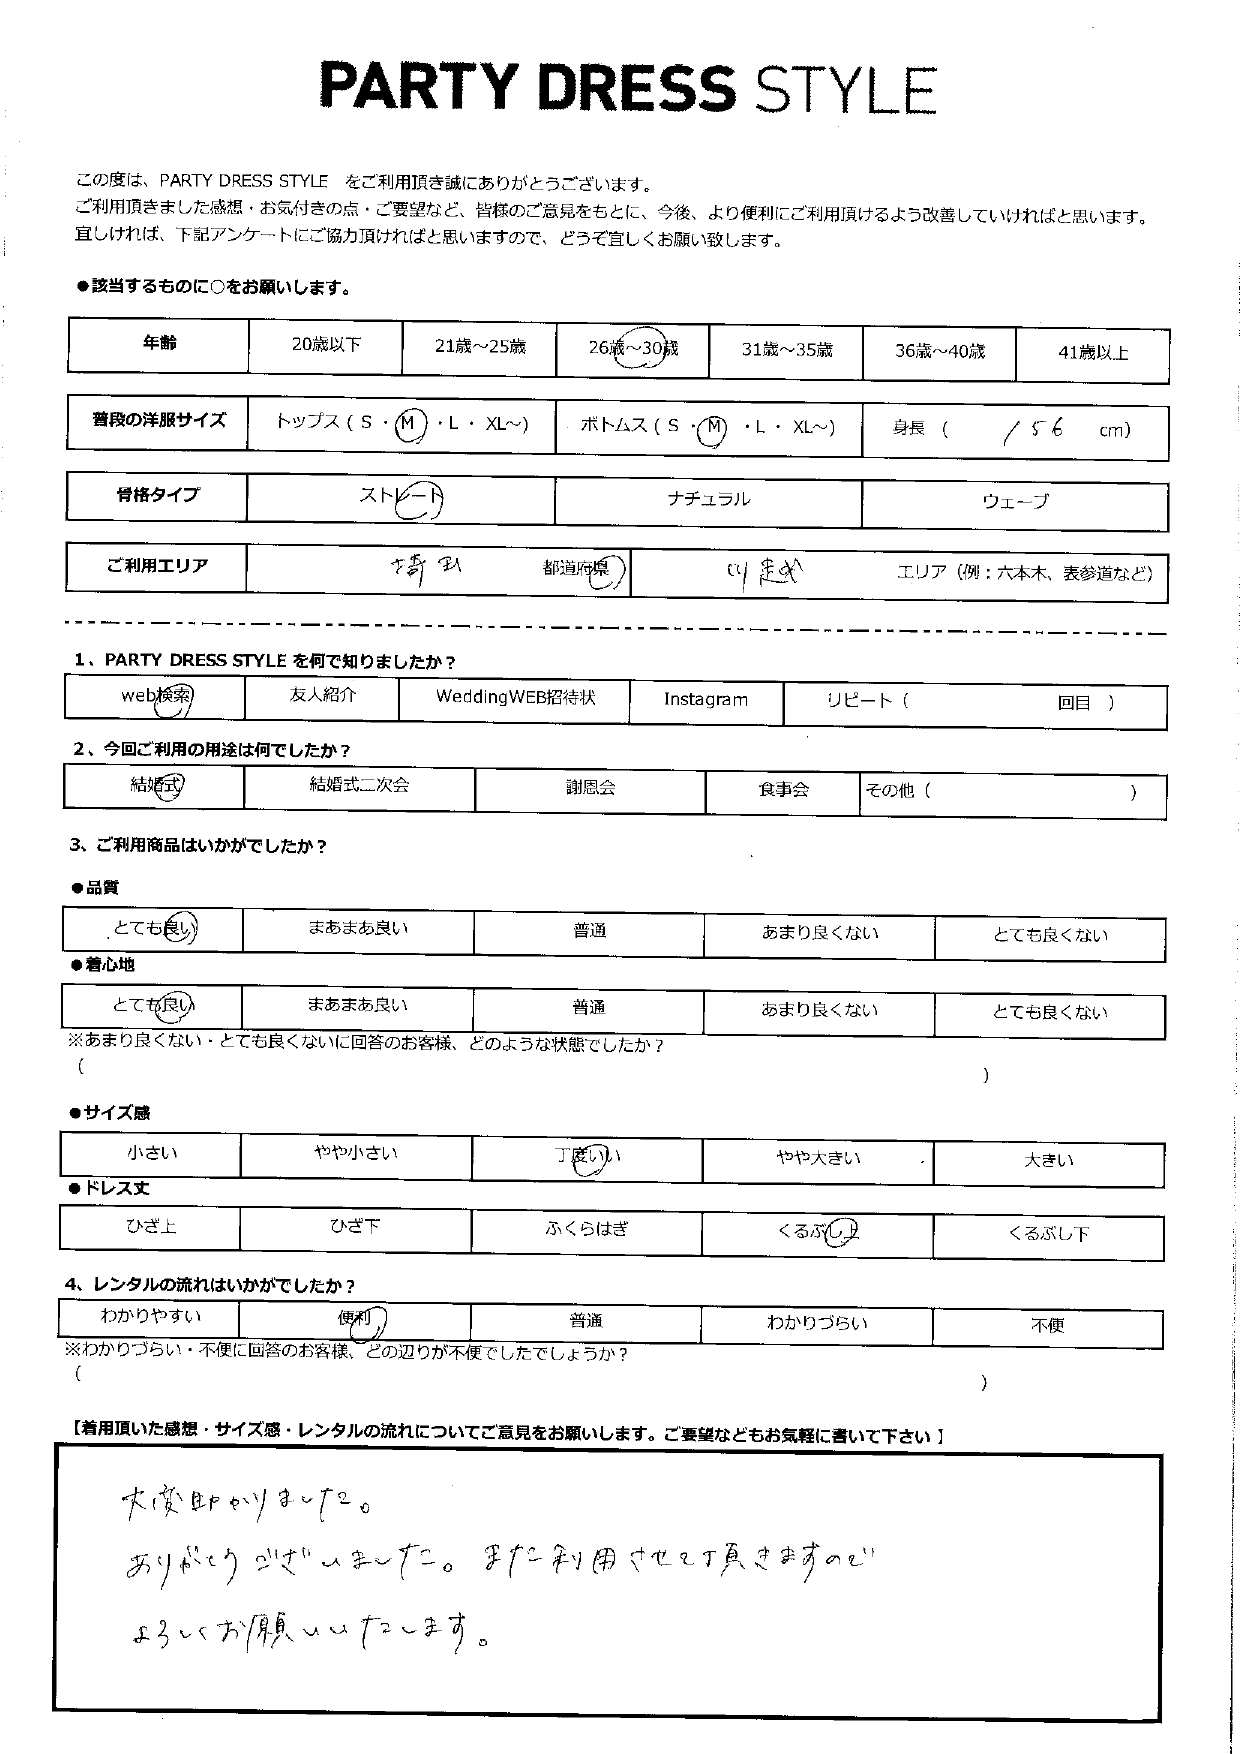 PARTY DRESS STYLE
この度は、PARTY DRESS STYLE をご利用頂き誠にありがとうございます。
ご利用頂きました感想・お気付きの点・ご要望など、皆様のご意見をもとに、今後、より便利にご利用頂けるよう改善していければと思います。
宜しければ、下記アンケートにご協力頂ければと思いますので、どうぞ宜しくお願い致します。
●該当するものに○をお願いします。
年齢 20歳以下 21歳～25歳 26歳～30歳 31歳～35歳 36歳～40歳 41歳以上
普段の洋服サイズ トップス ( S ・ M ・ L ・ XL～) ボトムス ( S ・ M ・ L ・ XL～) 身長 ( 156 cm)
骨格タイプ ストレート ナチュラル ウェーブ
ご利用エリア 埼玉 都道府県 川越 エリア（例：六本木、表参道など）
1、PARTY DRESS STYLE を何で知りましたか？
web検索 友人紹介 WeddingWEB招待状 Instagram リピート ( 回目 )
2、今回ご利用の用途は何でしたか？
結婚式 結婚式二次会 謝恩会 食事会 その他 ( )
3、ご利用商品はいかがでしたか？
●品質
とても良い まあまあ良い 普通 あまり良くない とても良くない
●着心地
とても良い まあまあ良い 普通 あまり良くない とても良くない
※あまり良くない・とても良くないに回答のお客様、どのような状態でしたか？
( )
●サイズ感
小さい やや小さい 丁度いい やや大きい 大きい
●ドレス丈
ひざ上 ひざ下 ふくらはぎ くるぶし上 くるぶし下
4、レンタルの流れはいかがでしたか？
わかりやすい 便利 普通 わかりづらい 不便
※わかりづらい・不便に回答のお客様、どの辺りが不便でしたでしょうか？
( )
【着用頂いた感想・サイズ感・レンタルの流れについてご意見をお願いします。ご要望などもお気軽に書いて下さい】
大変助かりました。
ありがとうございました。また利用させて頂きますので
よろしくお願いいたします。